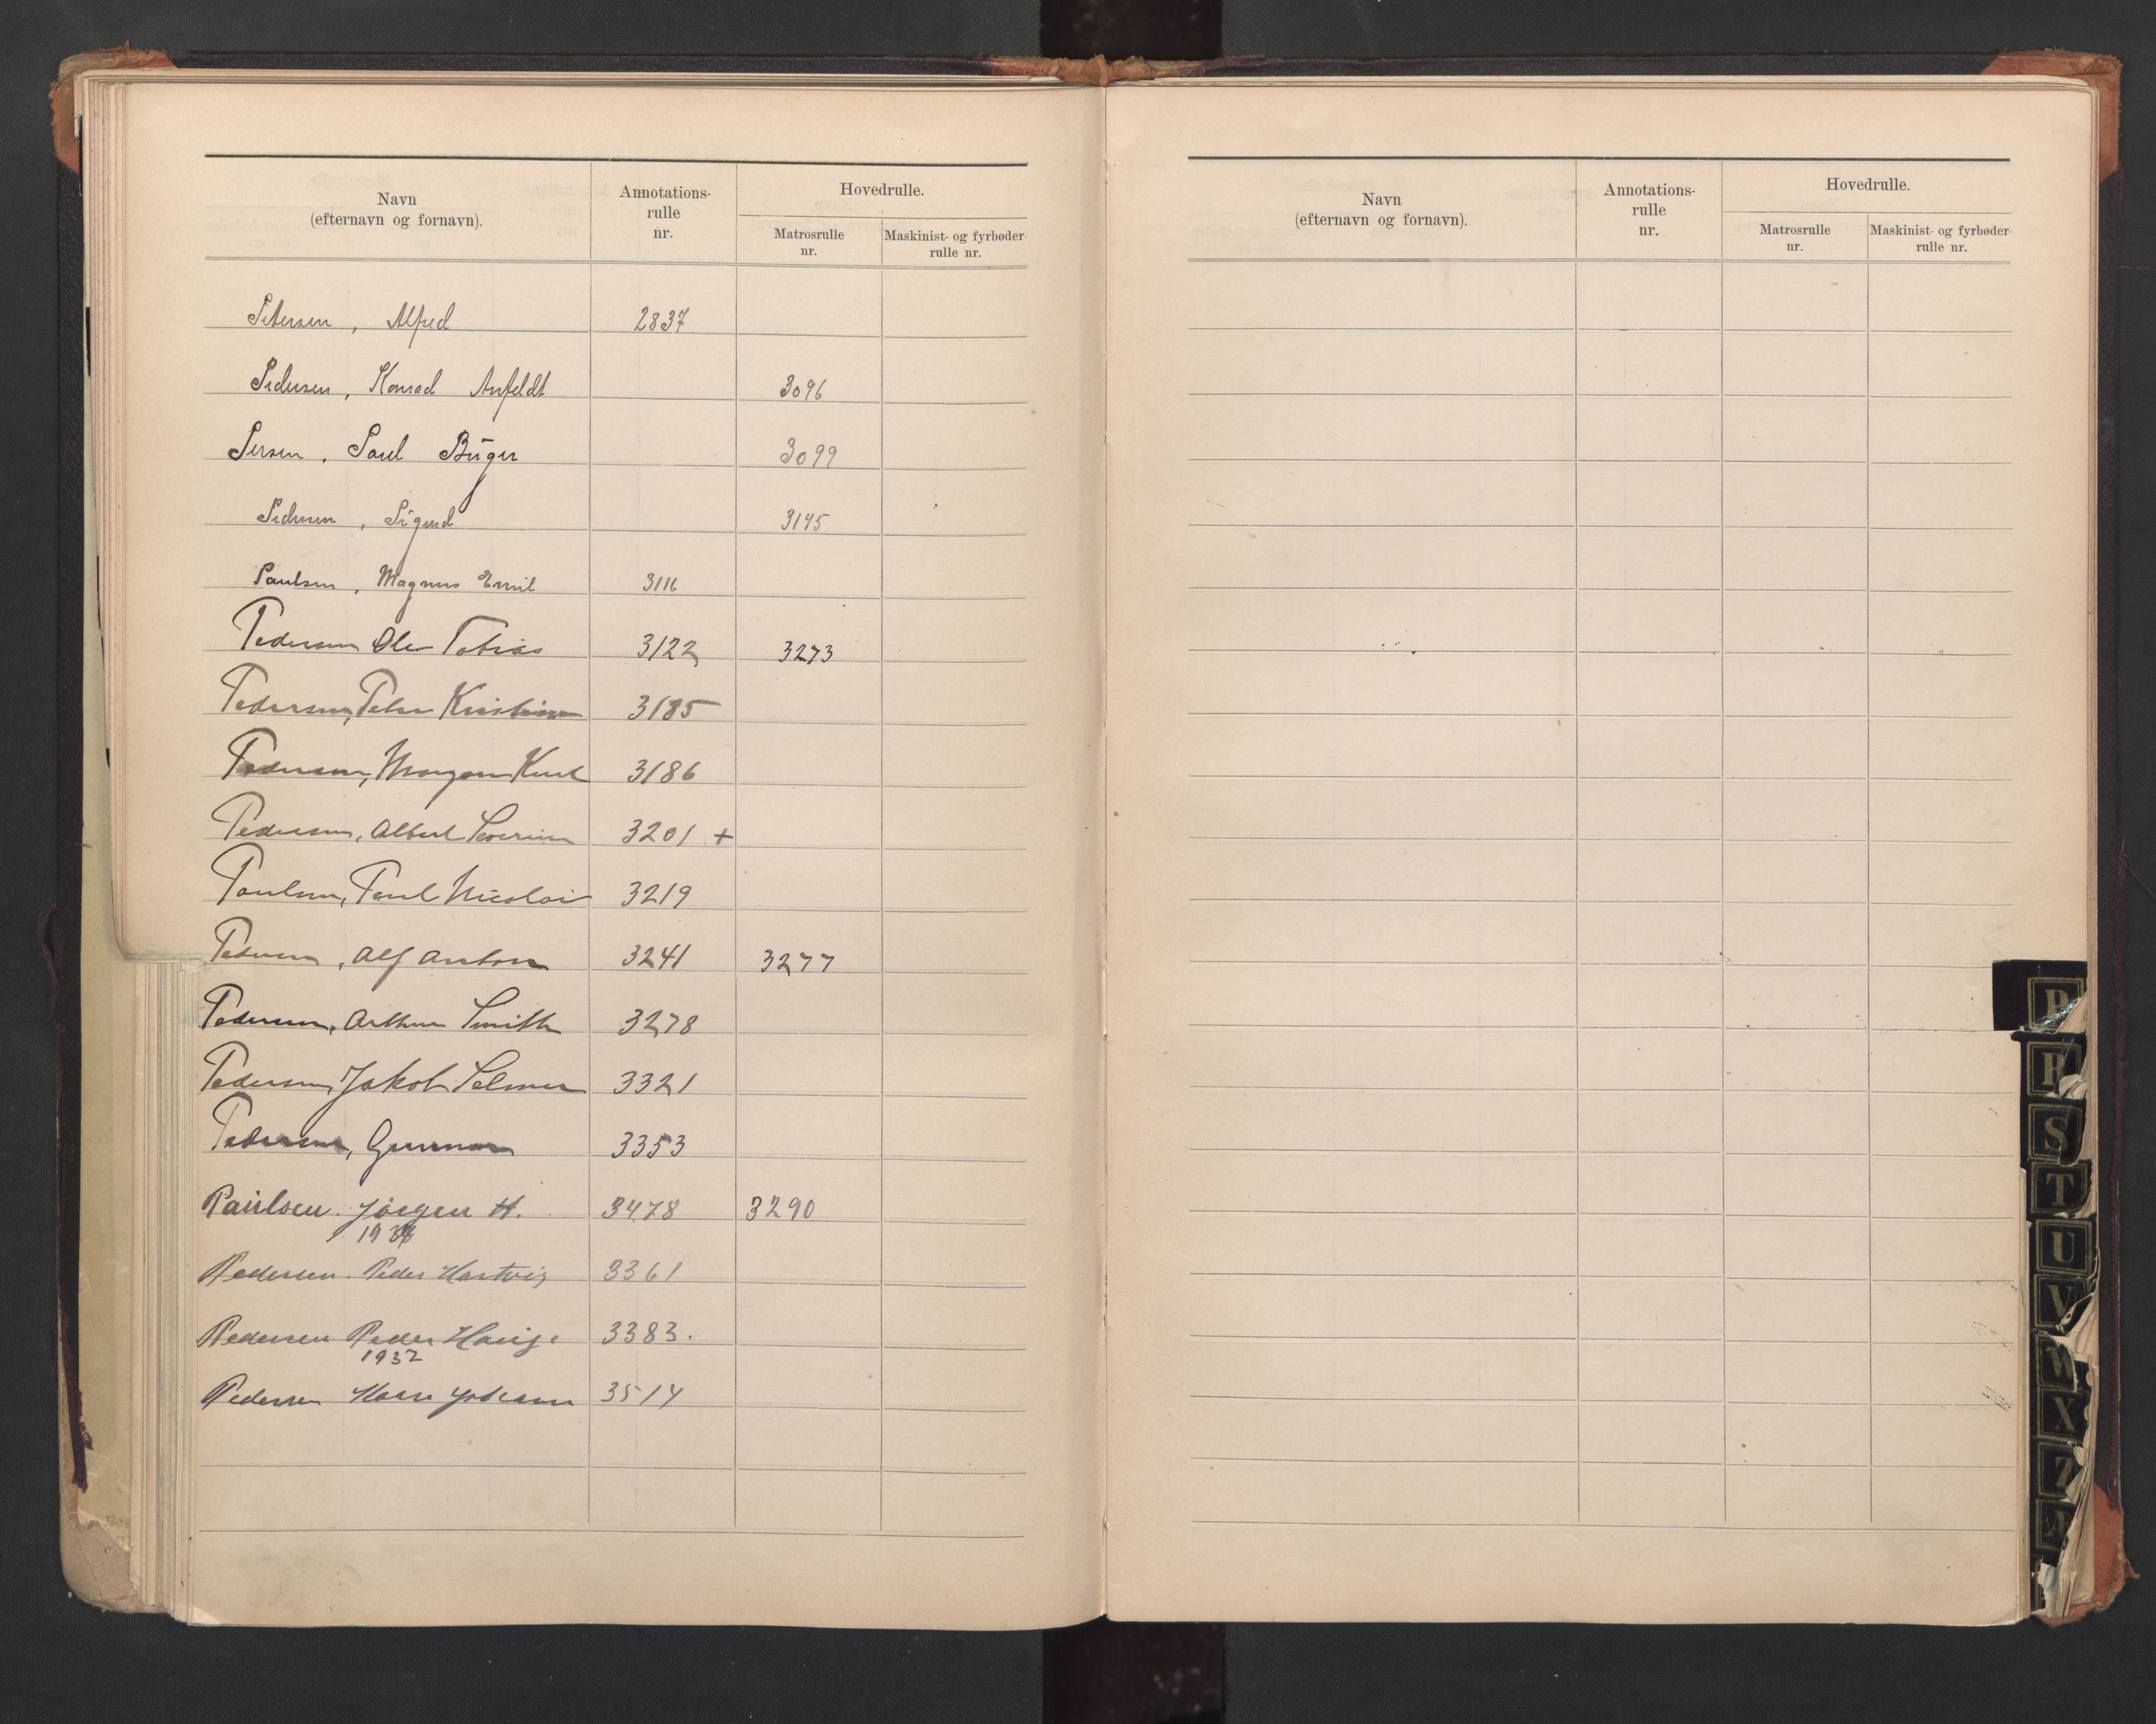 Navn
(efternavn og fornavn).
Annotations-
rulle
nr.
Hovedrulle.
Matrosrulle
nr.
Maskinist- og fyrbøder-
rulle nr.
Petersen, Alfred 2837
Pedersen, Konrad Anfeldt 3096
Persen, Paul Birger 3099
Pedersen, Sigurd 3145
Paulsen, Magnus Emil 3116
Pedersen Ole Tobias 3122 3273
Pedersen, Peter Kristian 3185
Pedersen, 3186
Pedersen, Albert Severin 3201 +
Paulsen, Paul Nicolai 3219
Pedersen, Alf Anton 3241 3277
Pedersen, Arthur Smith 3278
Pedersen, Jakob Selmer 3321
Pedersen, Gunnar 3353
Paulsen. Jørgen H. 3478 3290
Pedersen. Peder Hartvig 3361
Pedersen Peder Hauge 3383.
1932
Pedersen Hans Johann 3514
Navn
(efternavn og fornavn).
Annotations-
rulle
nr.
Hovedrulle.
Matrosrulle
nr.
Maskinist- og fyrbøder-
rulle nr.
P
R
S
T
U
V
W
X
Z